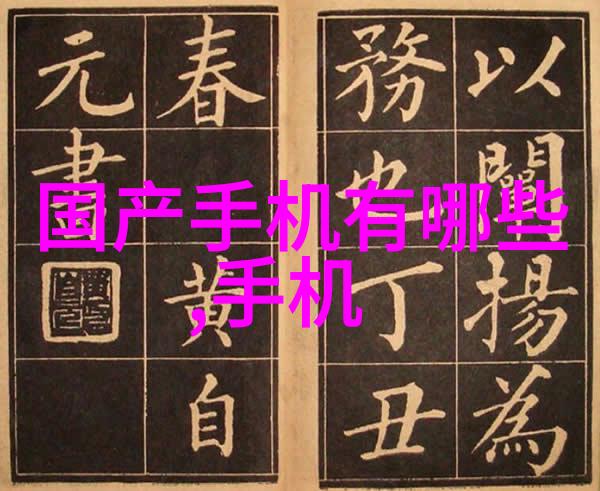 国产手机有哪些
,手机
以闡揚為
務也丁丑
春黄自
元書